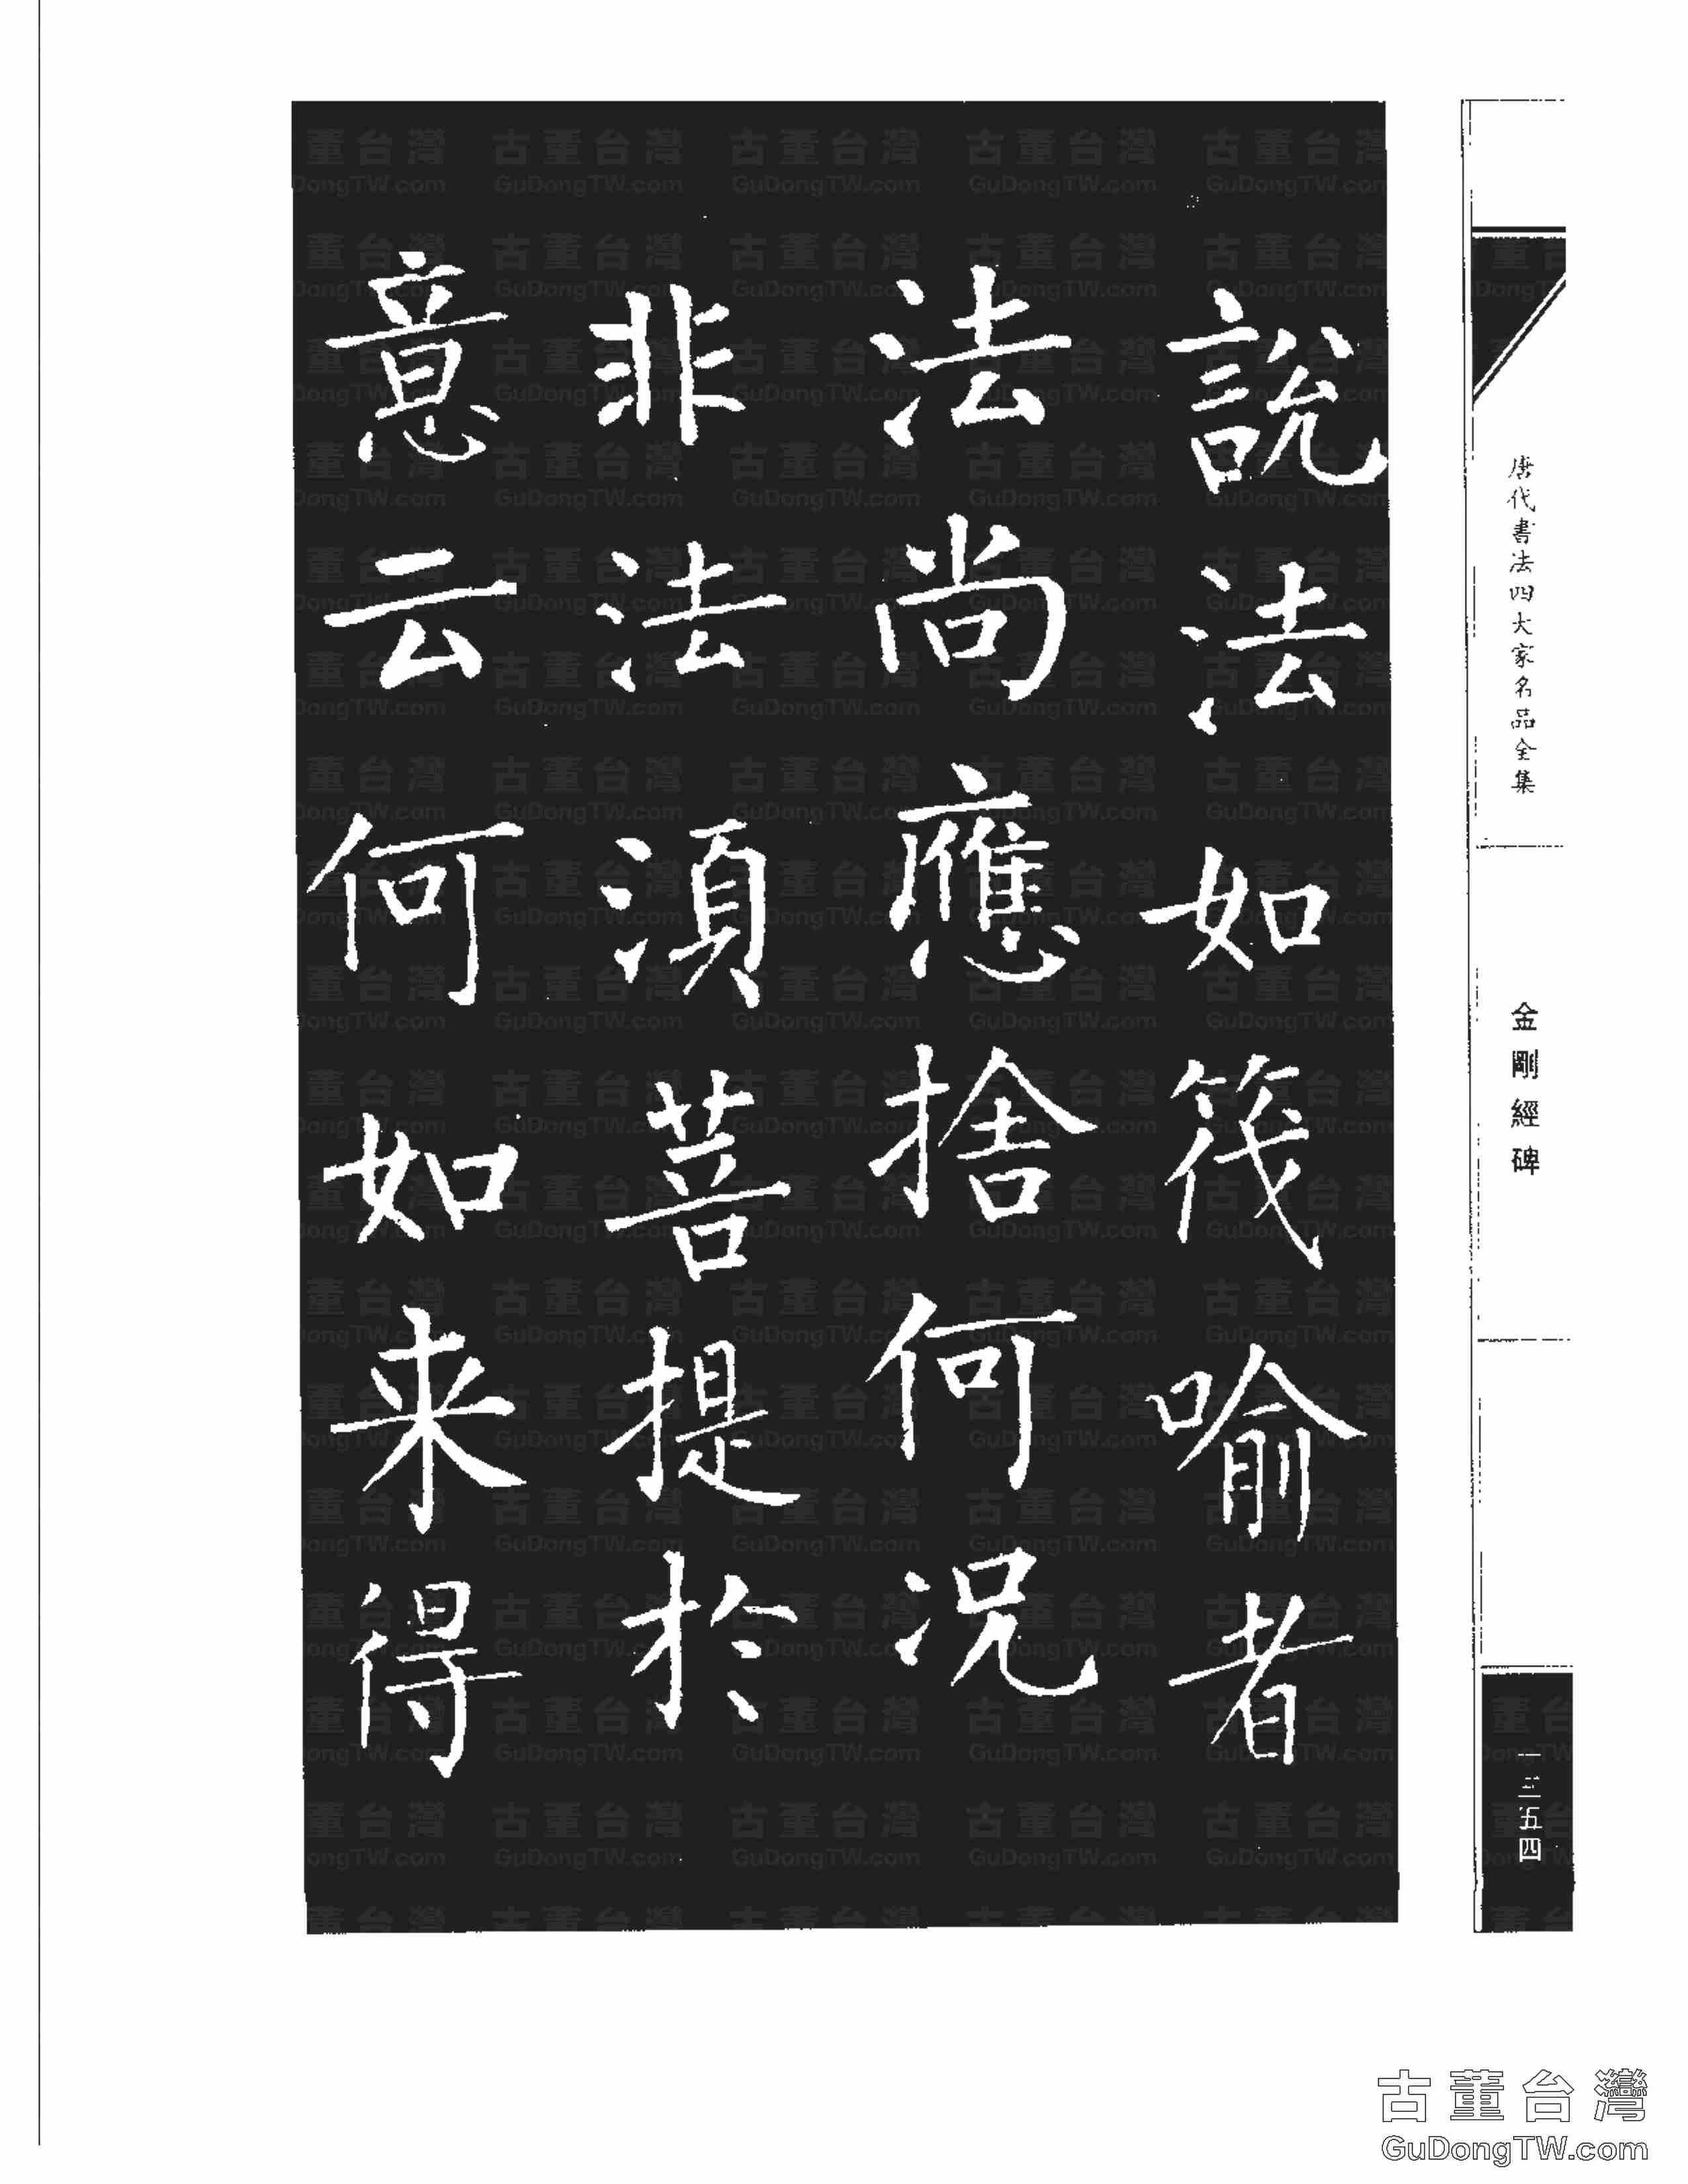 說法如筏喻者
法尚應捨何況
非法湏菩提於
意云何如来得
唐代書法四大家名品全集
金剛經碑
一三五四
古董台灣
GuDongTW.com